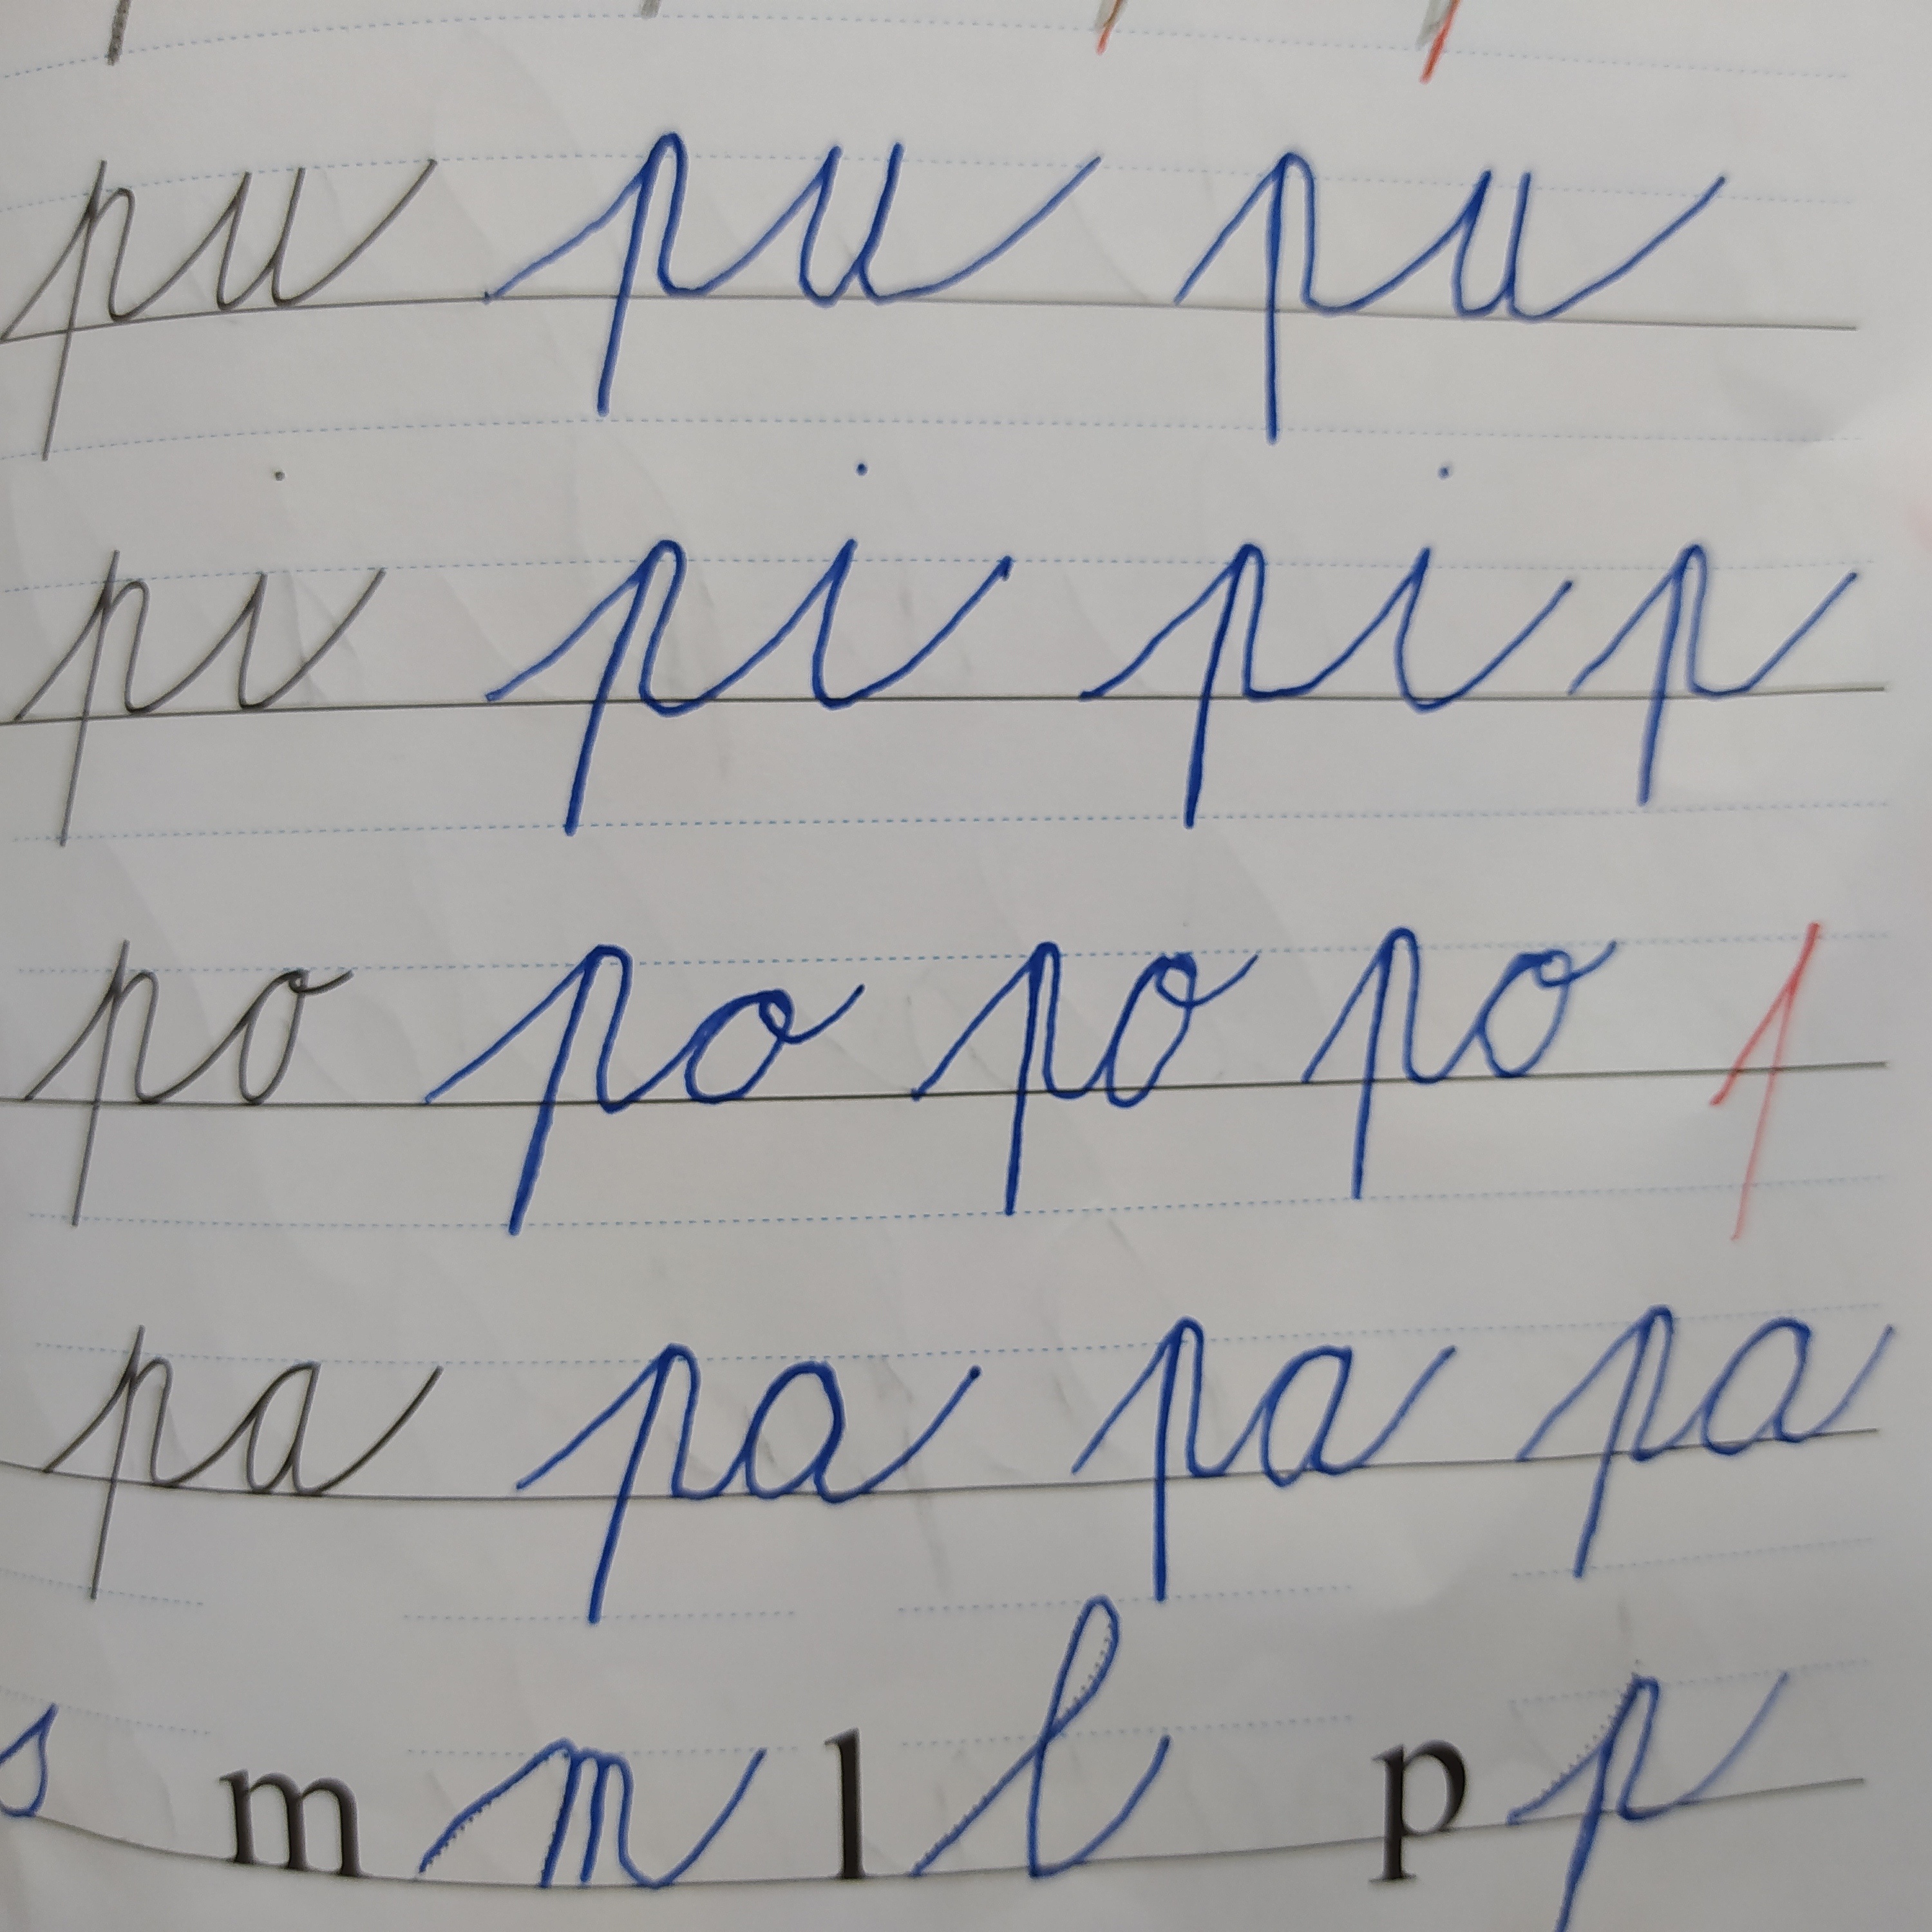 pu pu pu
pi pi pi p
po po po po
pa pa pa pa
s m m l l p p